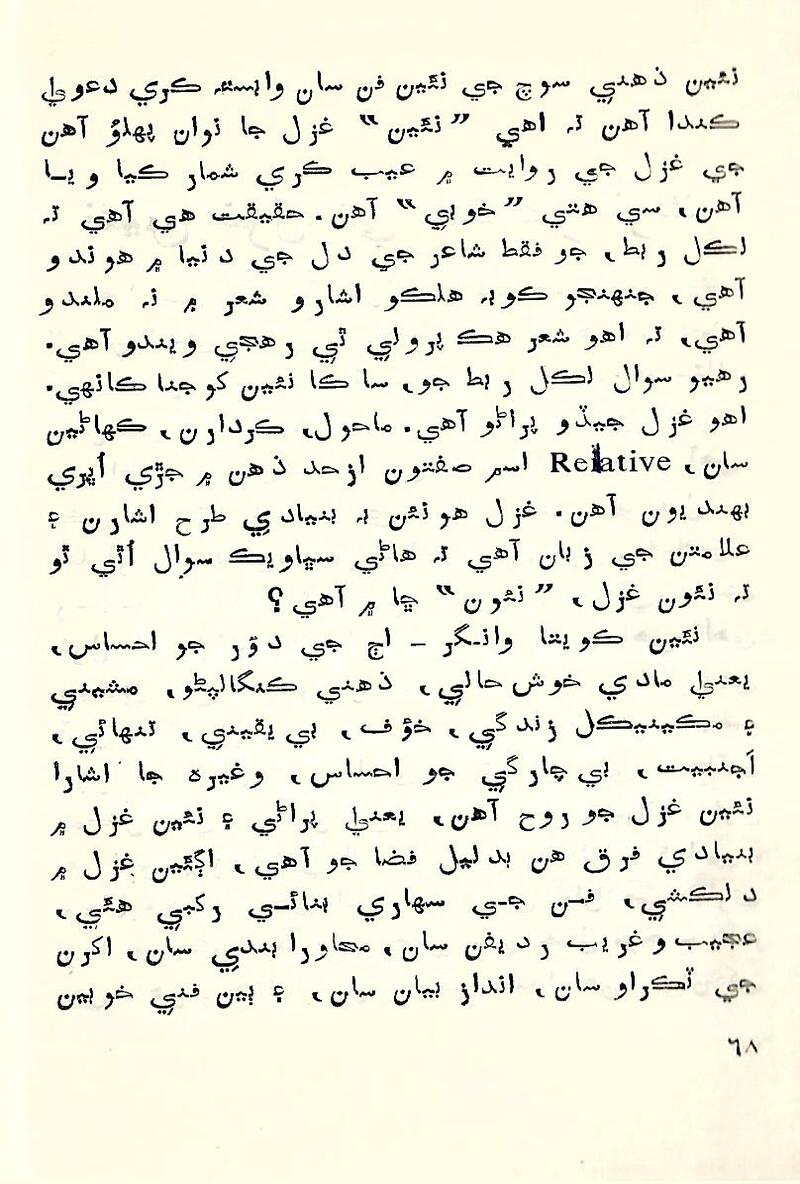 نئين ذهني سوچ جي نئين فن سان وابسته ڪري دعويٰ
ڪندا آهن ته اهي ”نئين“ غزل جا نوان پهلوُ آهن
جي غزل جي روايت ۾ عيب ڪري شمار ڪيا ويا
آهن، سي هتي ”خوبي“ آهن. حقيقت هي آهي ته
لڪل ربط، جو فقط شاعر جي دل جي دنيا ۾ هوندو
آهي، جنهنجو ڪوبه هلڪو اشارو شعر ۾ نه ملندو
آهي، ته اهو شعر هڪ پرولي ٿي رهجي ويندو آهي.
رهيو سوال لڪل ربط جو، سا ڪا نئين کوجنا ڪانهي.
اهو غزل جيڏو پراڻو آهي. ماحول، ڪردارن، ڪهاڻين
سان، Relative اسم صفتون ازحد ذهن ۾ جڙي اُڀري
پهنديون آهن. غزل هونئن به بنيادي طرح اشارن ۽
علامتن جي زبان آهي ته هاڻي سڀاويڪ سوال اُٿي ٿو
ته نئون غزل، ”نئون“ ڇا ۾ آهي؟
نئين ڪويتا وانگر - اڄ جي دؤر جو احساس،
يعنيٰ مادي خوش حالي، ذهني ڪنگالپڻو، مشيني
۽ مڪينيڪل زندگي، خؤف، بي يقيني، تنهائي،
اَجنبيت، بي چارگي جو احساس، وغيره جا اشارا
نئين غزل جو روح آهن، يعنيٰ پراڻي ۽ نئين غزل ۾
بنيادي فرق هن بدليل فضا جو آهي، اڳئين غزل ۾
دلڪشي، فن جي سهاري بنائي رکبي هئي،
عجيب و غريب رديفن سان، محاورا بندي سان، اکرن
جي ٽڪراو سان، انداز بيان سان، ۽ ٻين فني خوبين
٦٨